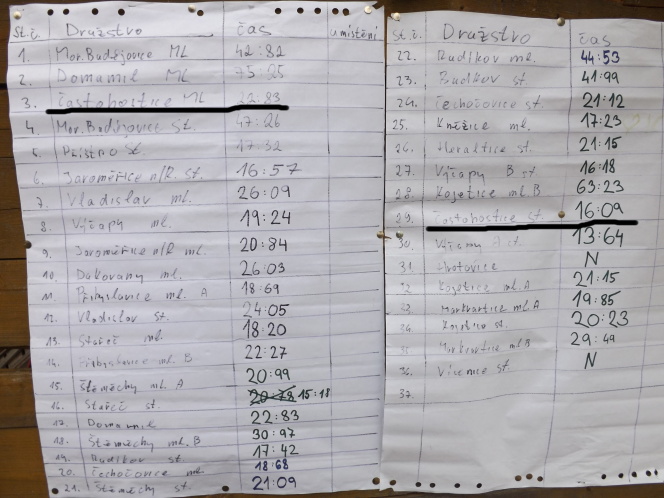 st.č. Družstvo čas umístění
1. Mor. Budějovice ML 42:82
2. Domamil ML 75:25
3. Častohostice ML 22:83
4. Mor. Budějovice st. 47:26
5. st 17:32
6. Jaroměřice n/R. st. 16:57
7. Vladislav ml. 26:09
8. Výčapy ml. 19:24
9. Jaroměřice n/R ml. 20:84
10. ml. 26:03
11. Přibyslavice ml. A 18:69
12. Vladislav st. 24:05
13. Stařeč ml. 18:20
14. Přibyslavice ml. B 22:27
15. Štěměchy ml. A 20:99
16. Stařeč st. 20:78 15:18
17. Domamil 22:83
18. Štěměchy ml. B 30:97
19. Radíkov st. 17:42
20. Čechočovice ml. 18:68
21. Štěměchy st. 21:09
st.č. Družstvo čas
22. Radíkov ml. 44:53
23. Budíkov st. 41:99
24. Čechočovice st. 21:12
25. Kněžice ml. 17:23
26. Heraltice st. 21:15
27. Výčapy B st 16:18
28. Kojetice ml. B 63:23
29. Častohostice st. 16:09
30. Výčapy A st. 13:64
31. Hrotovice N
32 Kojetice ml. A 21:15
33. Markvartice ml. A 19:85
34. Kojetice st. 20:23
35 Markvartice ml. B 29:49
36. Vícenice st. N
37.